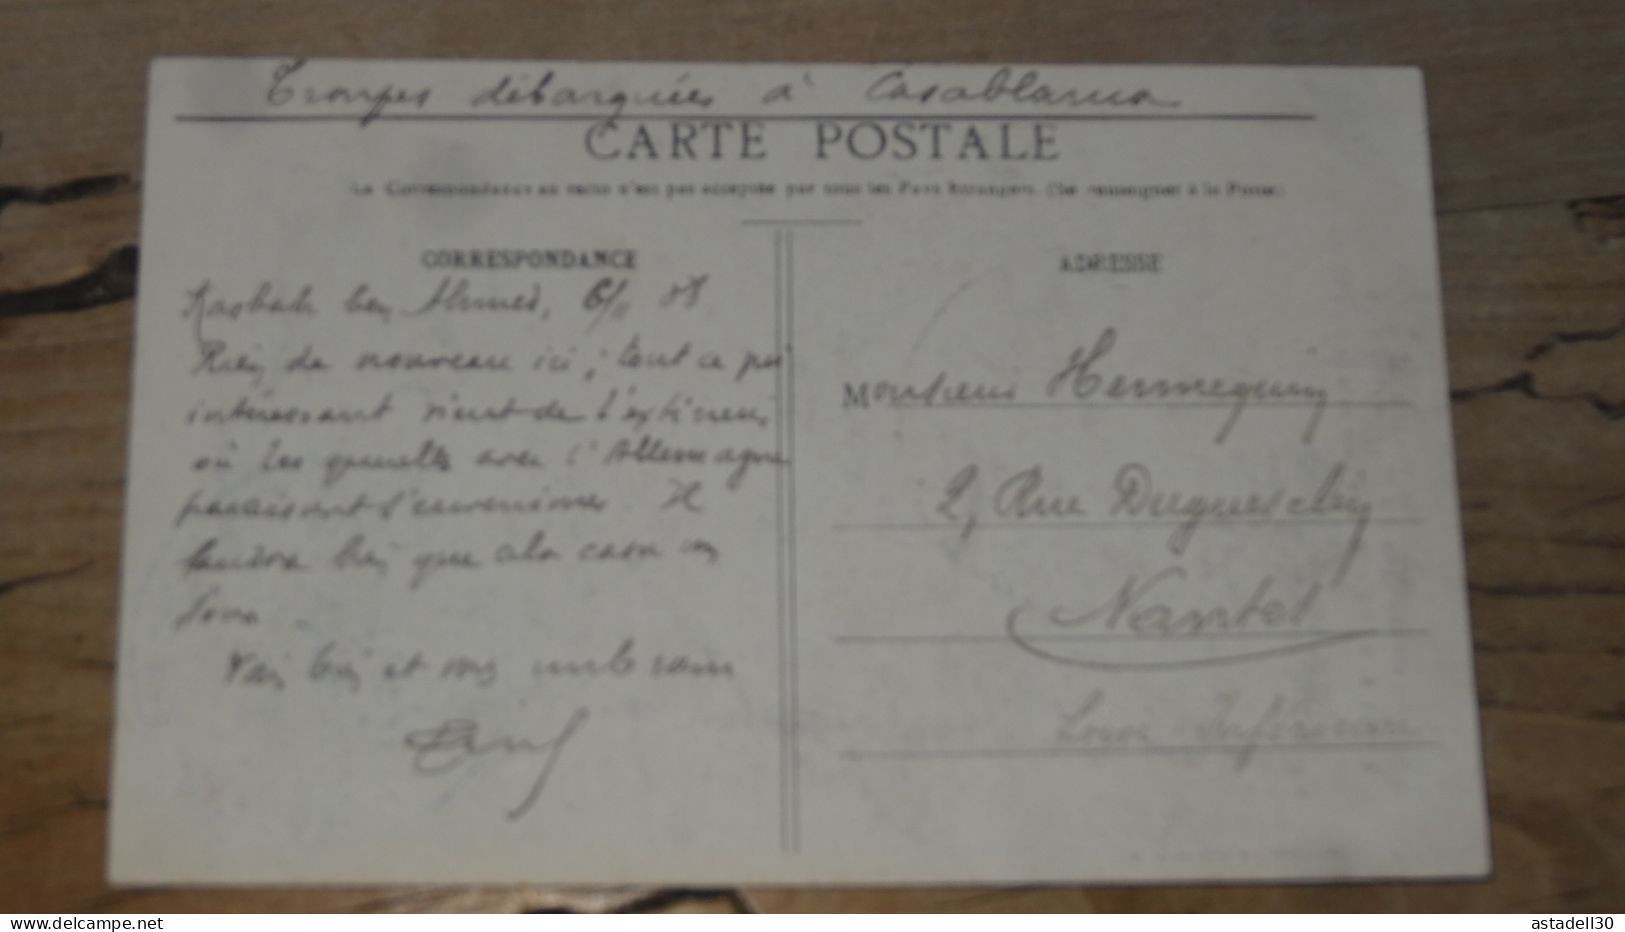 Troupes débarquées à Casablanca
CARTE POSTALE
La Correspondance au recto n'est pas acceptée par tous les Pays Etrangers. (Se renseigner à la Poste.)
CORRESPONDANCE
Kasbah ben Ahmed, 6/11 08
Rien de nouveau ici ; tout ce qui
intéressant vient de l'extérieur
où les querelles avec l'Allemagne
paraissent s'envenimer. Il
faudra bien que cela casse un
jour.
bien et
ADRESSE
Monsieur Hennequin
2, Rue Duguesclin
Nantes
Loire Inférieure
astadell30